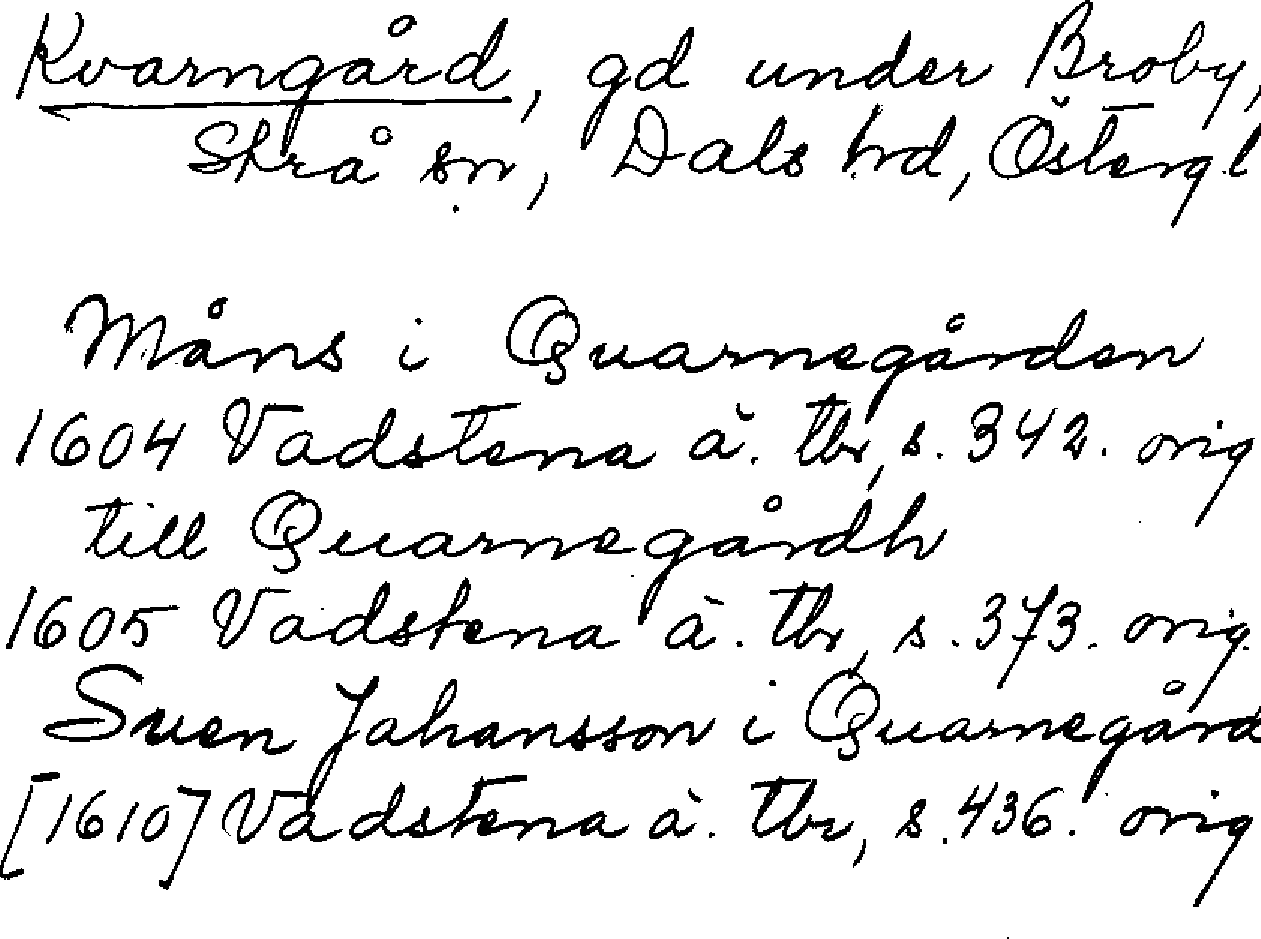 Kvarngård, gd under Broby,
Strå sn, Dals hd, Östergl
Måns i Quarnegården
1604 Vadstena ä. tbr, s. 342. orig
till Quarnegårdh
1605 Vadstena ä. tbr, s. 373. orig.
Suen Jahansson i Quarnegård
[1610] Vadstena ä. tbr, s. 436. orig